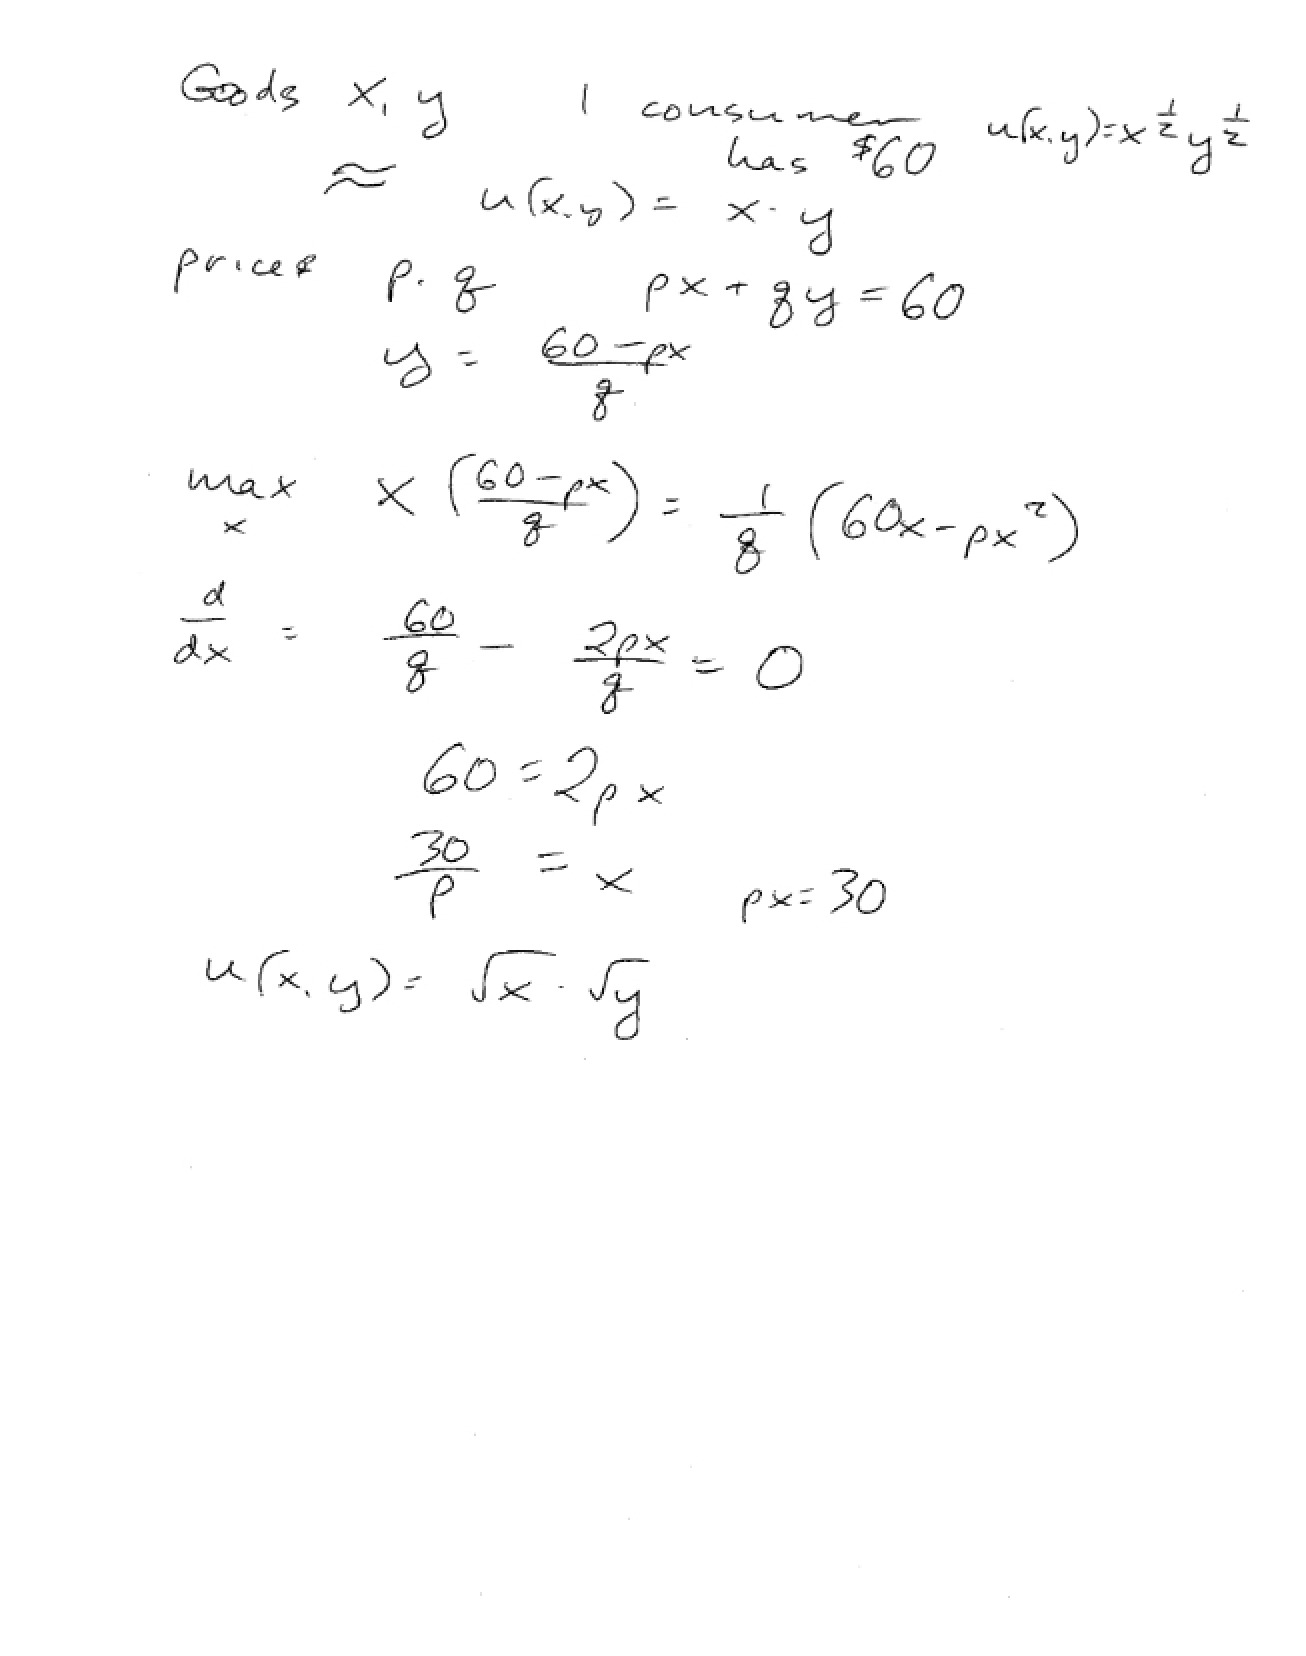 Goods x, y 1 consumer u(x,y)=x^{1/2}y^{1/2}
has $60
≈ u(x,y) = x · y
prices p, q px + qy = 60
y = \frac{60-px}{q}
max_x x (\frac{60-px}{q}) = \frac{1}{q} (60x - px^2)
\frac{d}{dx} = \frac{60}{q} - \frac{2px}{q} = 0
60 = 2px
\frac{30}{p} = x px = 30
u(x,y) = √x · √y